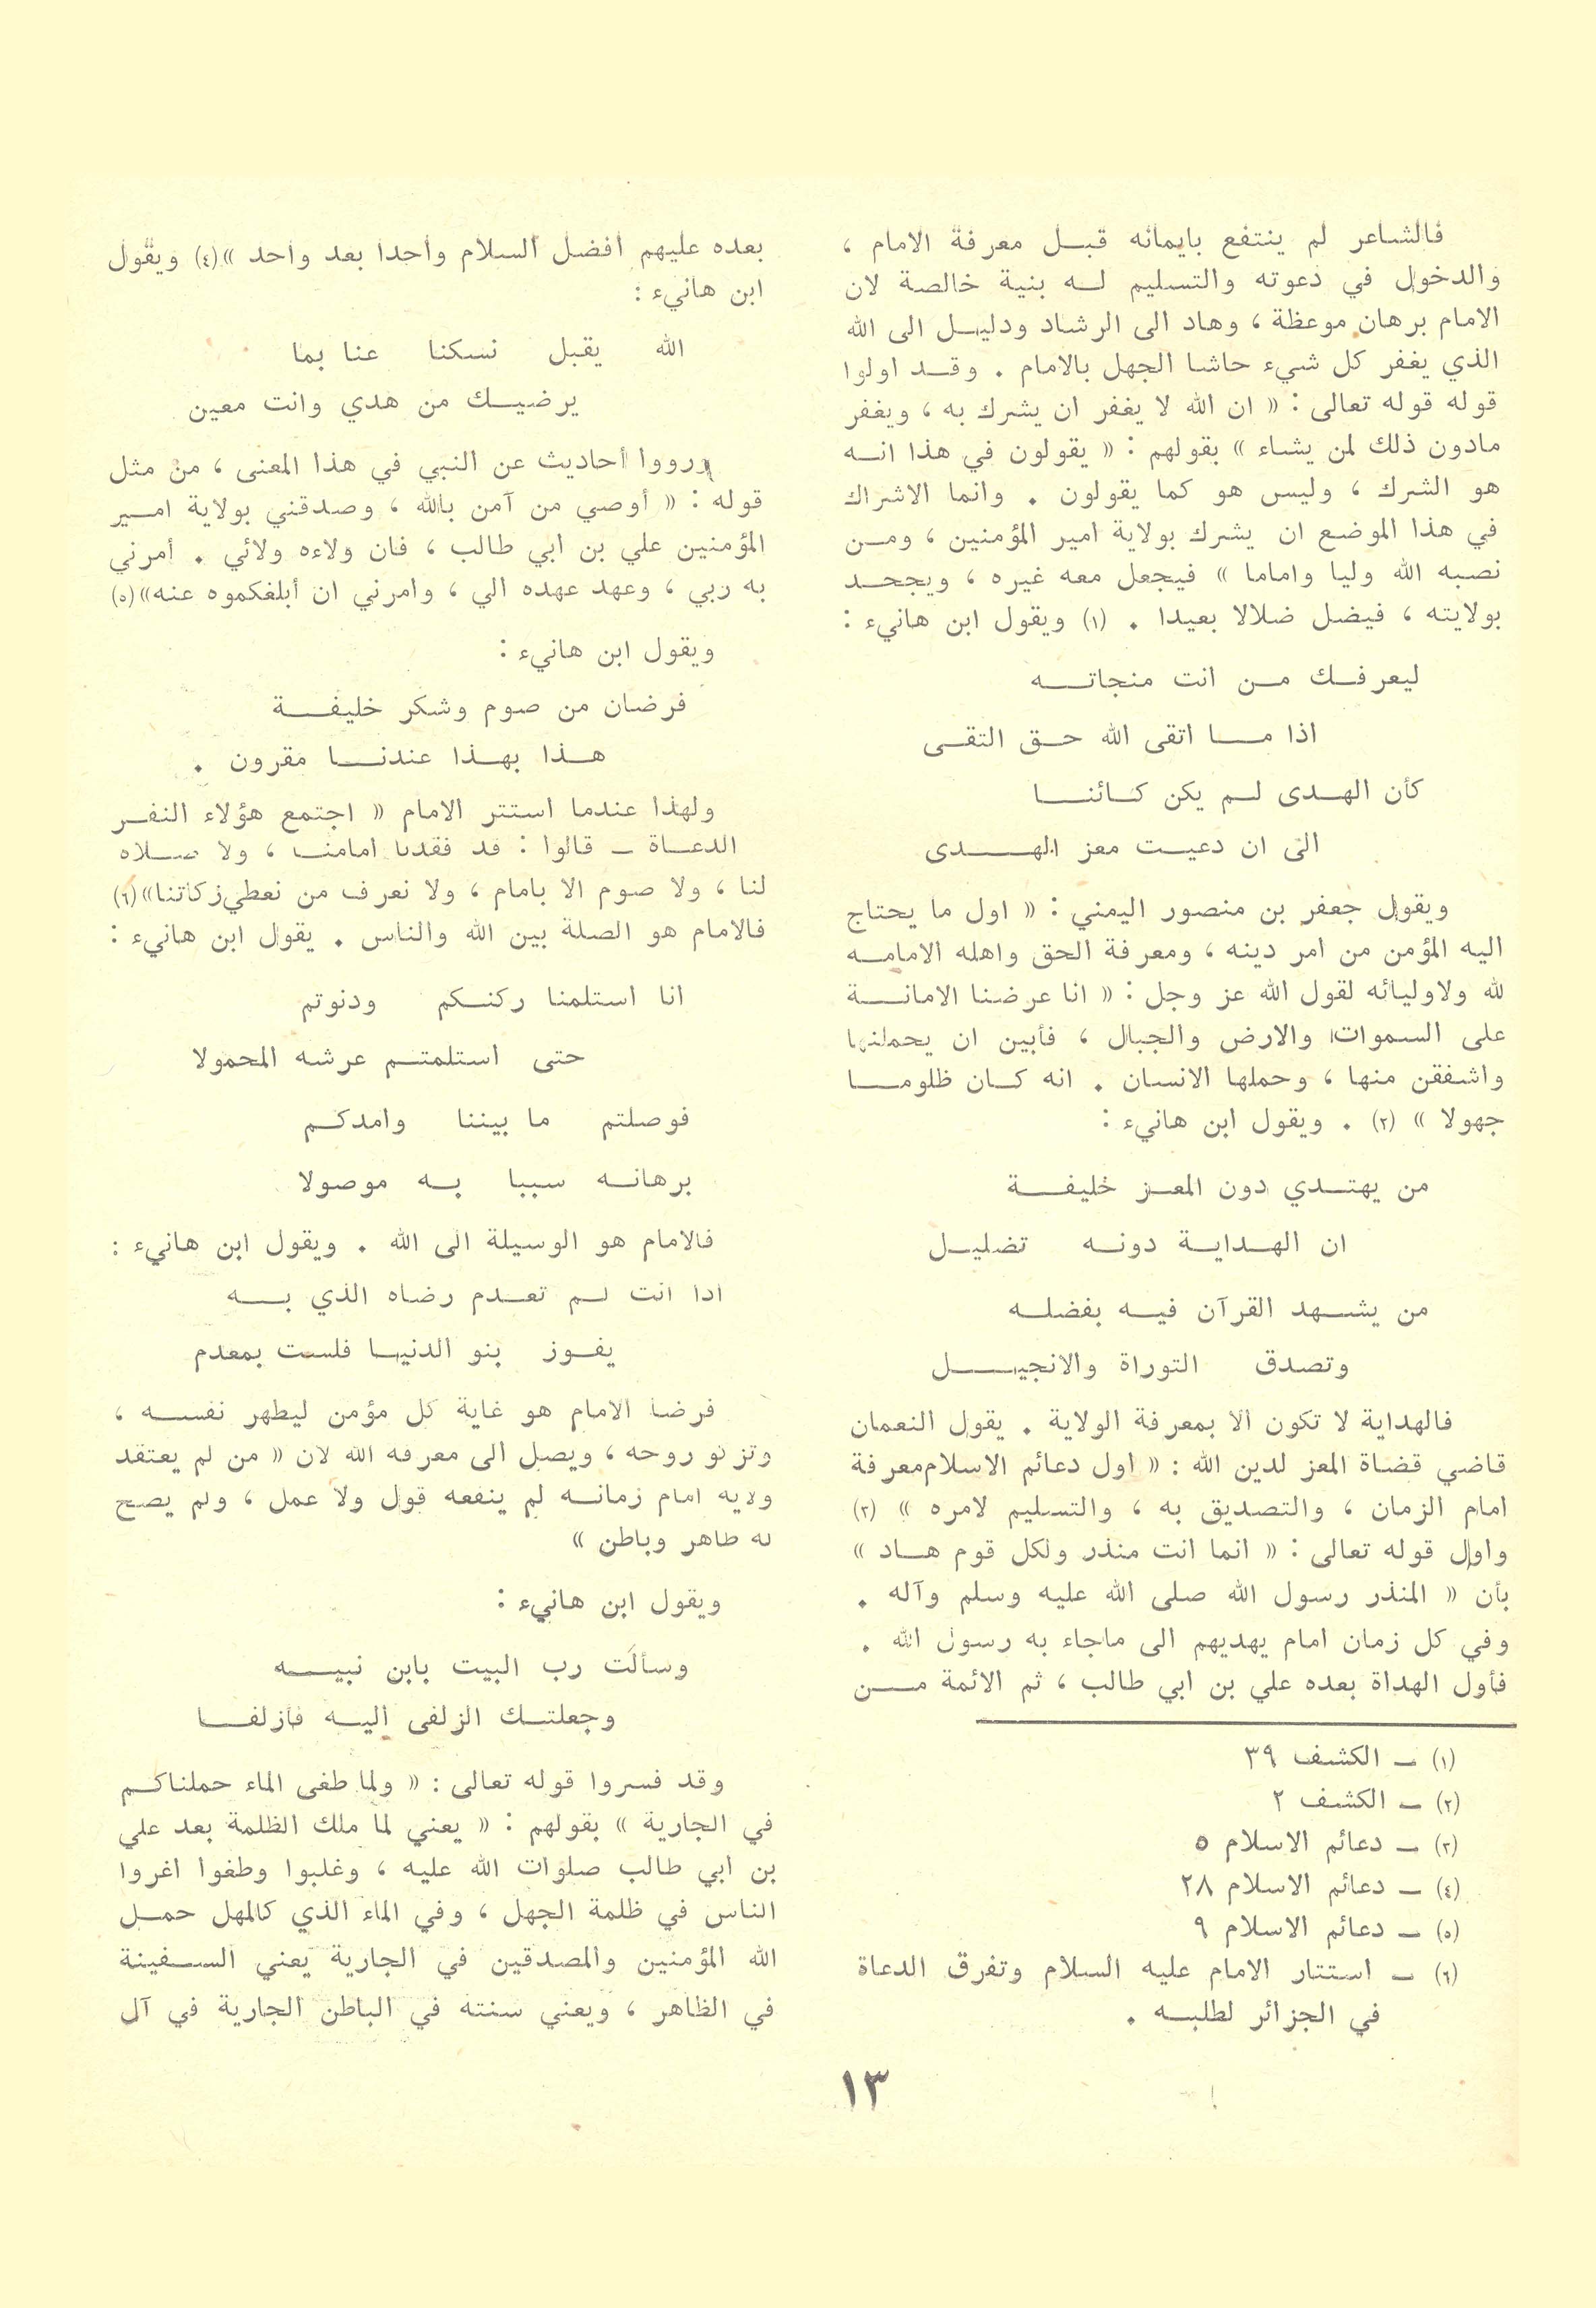 فالشاعر لم ينتفع بايمانه قبل معرفة الامام ،
والدخول في دعوته والتسليم له بنية خالصة لان
الامام برهان موعظة ، وهاد الى الرشاد ودليل الى الله
الذي يغفر كل شيء حاشا الجهل بالامام . وقد اولوا
قوله قوله تعالى : « ان الله لا يغفر ان يشرك به ، ويغفر
مادون ذلك لمن يشاء » بقولهم : « يقولون في هذا انه
هو الشرك ، وليس هو كما يقولون . وانما الاشراك
في هذا الموضع ان يشرك بولاية امير المؤمنين ، ومن
نصبه الله وليا واماما » فيجعل معه غيره ، ويجحد
بولايته ، فيضل ضلالا بعيدا . (١) ويقول ابن هانيء :
ليعرفك من انت منجاته
اذا ما اتقى الله حق التقى
كأن الهدى لم يكن كائنا
الى ان دعيت معز الهدى
ويقول جعفر بن منصور اليمني : « اول ما يحتاج
اليه المؤمن من امر دينه ، ومعرفة الحق واهله الامامه
لله ولاوليائه لقول الله عز وجل : « انا عرضنا الامانة
على السموات والارض والجبال ، فأبين ان يحملنها
واشفقن منها ، وحملها الانسان . انه كان ظلوما
جهولا » (٢) . ويقول ابن هانيء :
من يهتدي دون المعز خليفة
ان الهداية دونه تضليل
من يشهد القرآن فيه بفضله
وتصدق التوراة والانجيل
فالهداية لا تكون الا بمعرفة الولاية . يقول النعمان
قاضي قضاة المعز لدين الله : « اول دعائم الاسلام معرفة
امام الزمان ، والتصديق به ، والتسليم لامره » (٣)
واول قوله تعالى : « انما انت منذر ولكل قوم هاد »
بأن « المنذر رسول الله صلى الله عليه وسلم وآله .
وفي كل زمان امام يهديهم الى ماجاء به رسول الله .
فأول الهداة بعده علي بن ابي طالب ، ثم الائمة من
(١) ـ الكشف ٣٩
(٢) ـ الكشف ٢
(٣) ـ دعائم الاسلام ٥
(٤) ـ دعائم الاسلام ٢٨
(٥) ـ دعائم الاسلام ٩
(٦) ـ استتار الامام عليه السلام وتفرق الدعاة
في الجزائر لطلبه .
بعده عليهم افضل السلام واحدا بعد واحد »(٤) ويقول
ابن هانيء :
الله يقبل نسكنا عنا بما
يرضيك من هدي وانت معين
ورووا أحاديث عن النبي في هذا المعنى ، من مثل
قوله : « أوصي من آمن بالله ، وصدقني بولاية امير
المؤمنين علي بن ابي طالب ، فان ولاءه ولائي . أمرني
به ربي ، وعهد عهده الي ، وامرني ان أبلغكموه عنه»(٥)
ويقول ابن هانيء :
فرضان من صوم وشكر خليفة
هذا بهذا عندنا مقرون .
ولهذا عندما استتر الامام « اجتمع هؤلاء النفر
الدعاة ـ قالوا : قد فقدنا امامنا ، ولا صلاة
لنا ، ولا صوم الا بامام ، ولا نعرف من نعطي زكاتنا»(٦)
فالامام هو الصلة بين الله والناس . يقول ابن هانيء :
انا استلمنا ركنكم ودنوتم
حتى استلمتم عرشه المحمولا
فوصلتم ما بيننا وامدكم
برهانه سببا به موصولا
فالامام هو الوسيلة الى الله . ويقول ابن هانيء :
اذا انت لم تعدم رضاه الذي به
يفوز بنو الدنيا فلست بمعدم
فرضا الامام هو غاية كل مؤمن ليطهر نفسه ،
وتزكو روحه ، ويصل الى معرفه الله لان « من لم يعتقد
ولايه امام زمانه لم ينفعه قول ولا عمل ، ولم يصح
له ظاهر وباطن »
ويقول ابن هانيء :
وسألت رب البيت بابن نبيه
وجعلتك الزلفى اليه فأزلفا
وقد فسروا قوله تعالى : « ولما طغى الماء حملناكم
في الجارية » بقولهم : « يعني لما ملك الظلمة بعد علي
بن ابي طالب صلوات الله عليه ، وغلبوا وطغوا اغروا
الناس في ظلمة الجهل ، وفي الماء الذي كالمهل حمل
الله المؤمنين والمصدقين في الجارية يعني السفينة
في الظاهر ، ويعني سنته في الباطن الجارية في آل
١٣